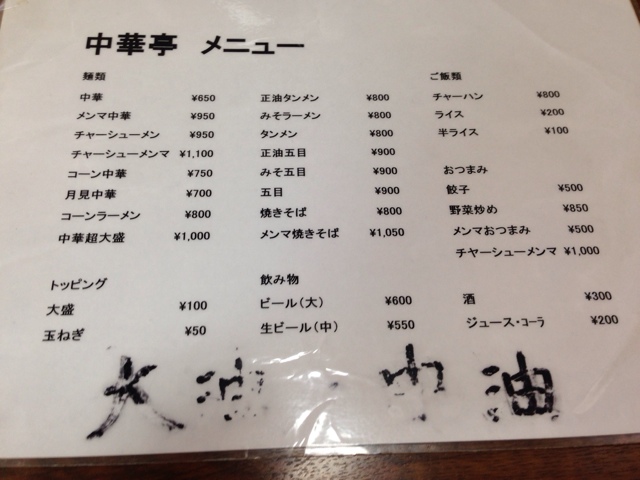 中華亭 メニュー
麺類
中華 ¥650
メンマ中華 ¥950
チャーシューメン ¥950
チャーシューメンマ ¥1,100
コーン中華 ¥750
月見中華 ¥700
コーンラーメン ¥800
中華超大盛 ¥1,000
正油タンメン ¥800
みそラーメン ¥800
タンメン ¥800
正油五目 ¥900
みそ五目 ¥900
五目 ¥900
焼きそば ¥800
メンマ焼きそば ¥1,050
ご飯類
チャーハン ¥800
ライス ¥200
半ライス ¥100
おつまみ
餃子 ¥500
野菜炒め ¥850
メンマおつまみ ¥500
チヤーシューメンマ ¥1,000
トッピング
大盛 ¥100
玉ねぎ ¥50
飲み物
ビール(大) ¥600
生ビール(中) ¥550
酒 ¥300
ジュース・コーラ ¥200
大油・中油